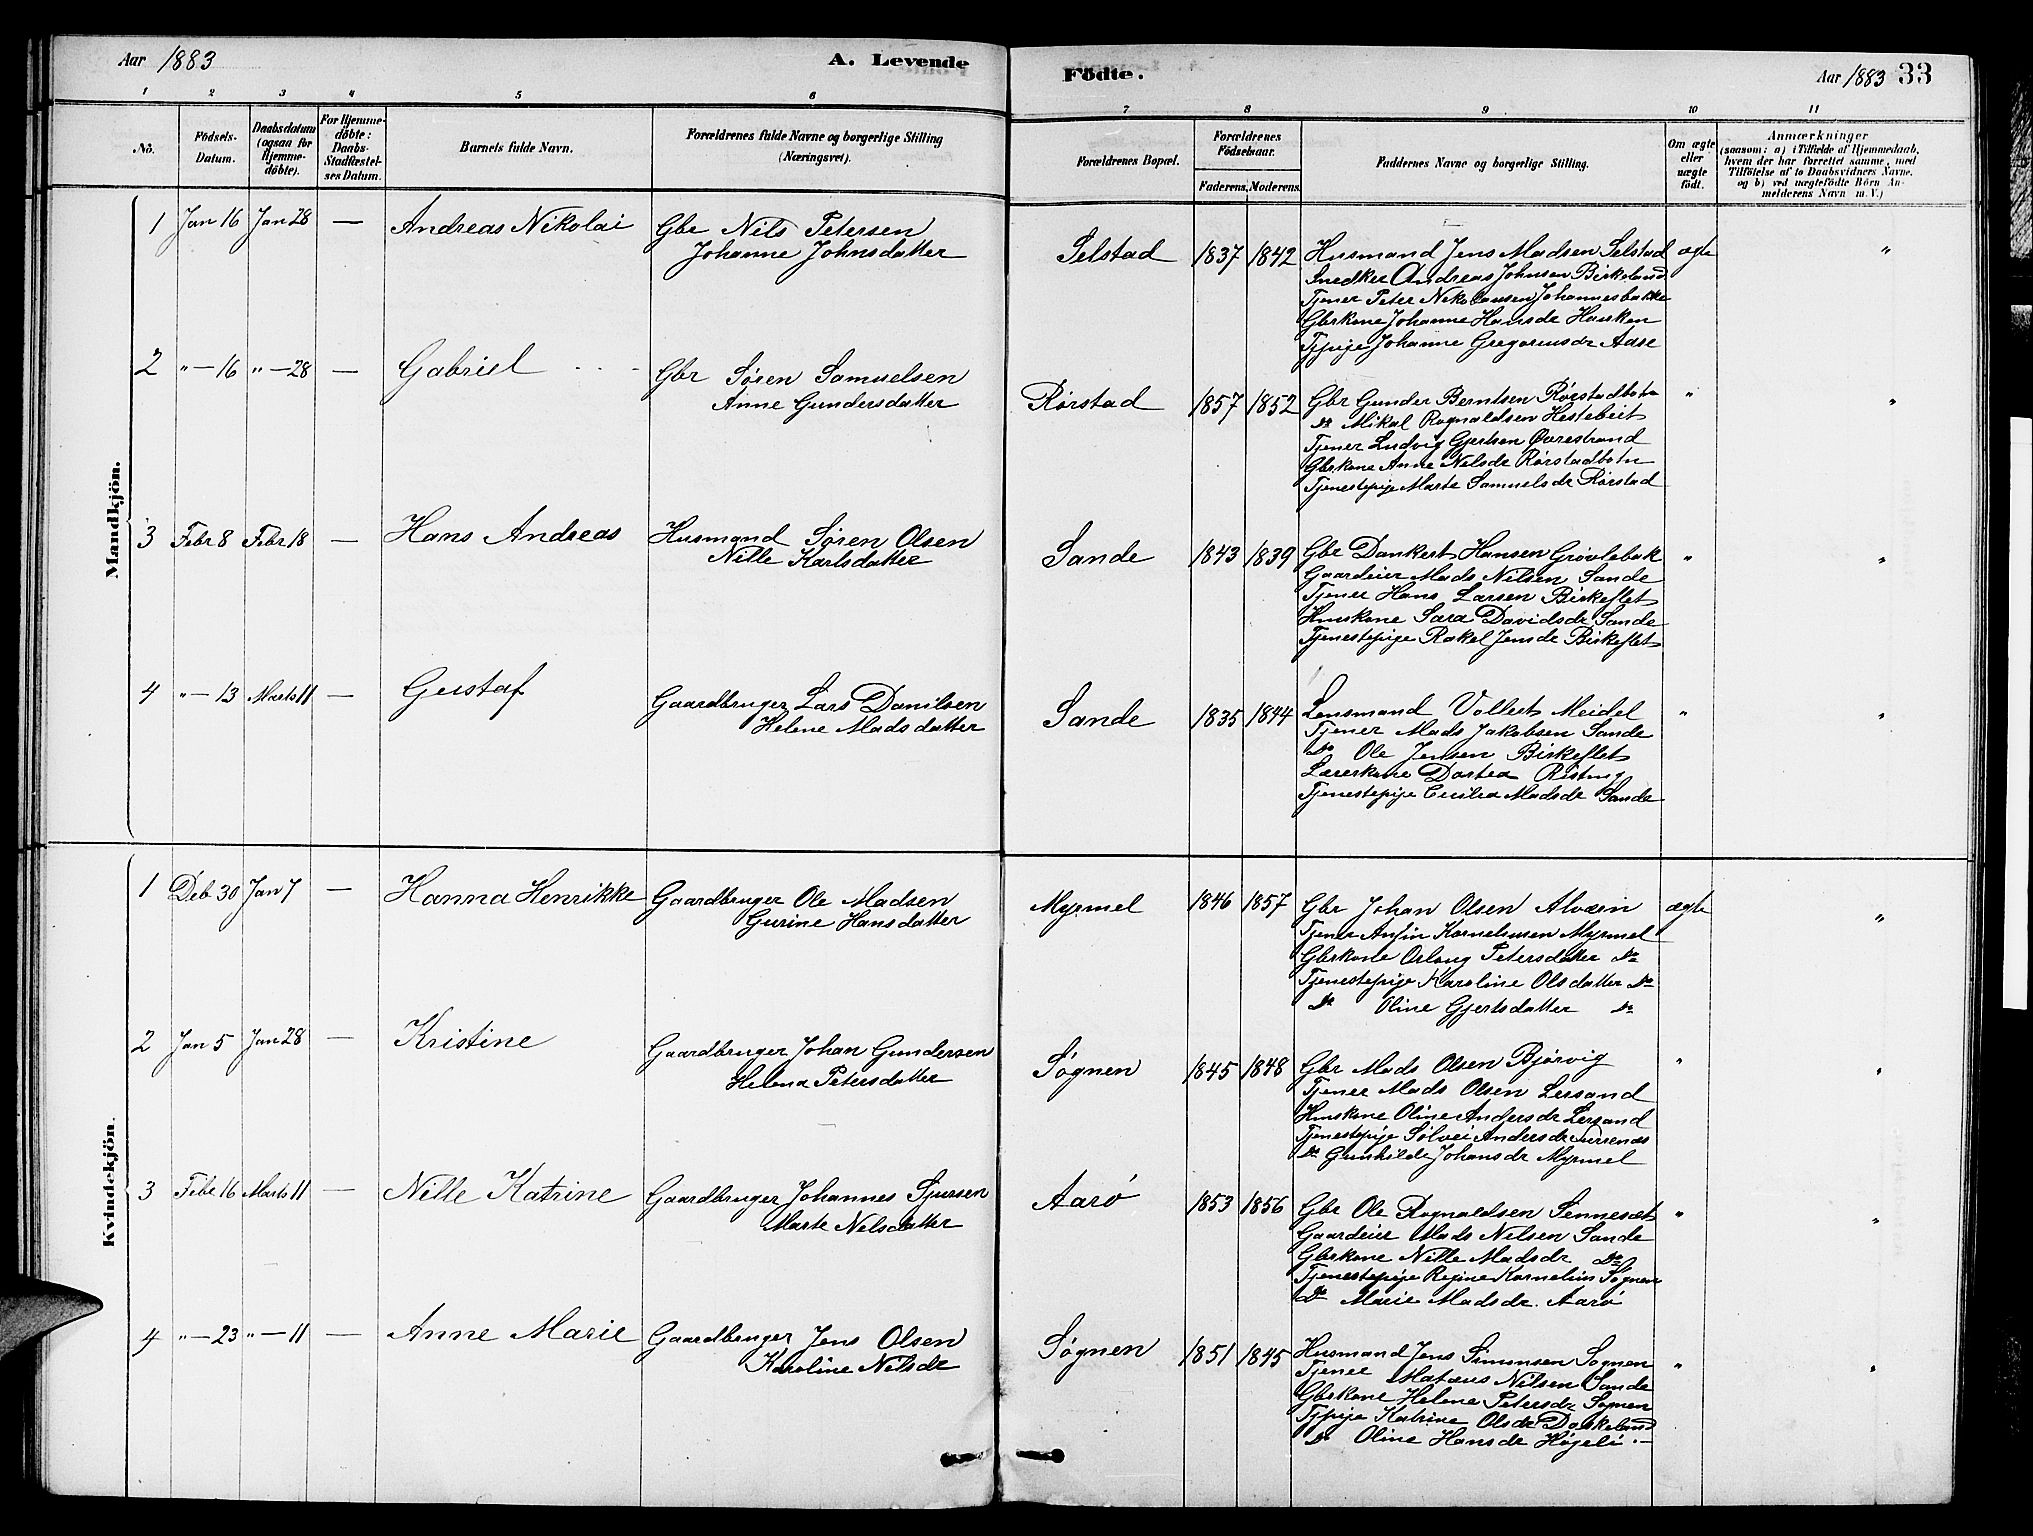 Aar 1883 A. Levende Födte. Aar 1883 33
1 2 3 4 5 6 7 8 9 10 11
No. Födsels-Datum. Daabsdatum (ogsaa for Hjemme-döbte). For Hjemme-döbte: Daabs-Stadfæstel-ses Datum. Barnets fulde Navn. Forældrenes fulde Navne og borgerlige Stilling (Næringsvei). Forældrenes Bopæl. Forældrenes Födselsaar. Faderens. Moderens. Faddernes Navne og borgerlige Stilling. Om ægte eller uægte födt. Anmærkninger (saasom: a) i Tilfælde af Hjemmedaab, hvem der har forrettet samme, med Tilföielse af to Daabsvidners Navne, og b) ved uægtefödte Börn An-melderens Navn m. V.)
Mandkjön.
1 Jan 16 Jan 28 — Andreas Nikolai Gbr Nils Petersen
Johanne Johnsdatter Selstad 1837 1842 Husmand Jens Madsen Selstad ægte "
Snedker Andreas Johnsen Birkeland
Tjener Peter Nikolausen Johannesbakke
Gbrkone Johanne Hansdr Hauken
Tjpige Johanne Gregoriusdr Aase
2 " — 16 " — 28 — Gabriel Gbr Søren Samuelsen
Anne Gundersdatter Rørstad 1857 1852 Gbr Gunder Berntsen Rørstadbotn " "
Do Mikal Rognaldsen Hestebeit
Tjener Ludvig Gjertsen Øvrestrand
Gbrkone Anne Nelsdr Rørstadbotn
Tjenestepige Marte Samuelsdr Rørstad
3 Febr 8 Febr 18 — Hans Andreas Husmand Søren Olsen
Nille Karlsdatter Sande 1843 1839 Gbr Dankert Hansen Grøvlebak " "
Gaardeier Mads Nilsen Sande
Tjener Hans Larsen Birkeflet
Huskone Sara Davidsdr Sande
Tjenestepige Rakel Jensdr Birkeflet
4 " — 13 Marts 11 — Gustaf Gaardbruger Lars Danilsen
Helene Madsdatter Sande 1835 1844 Lensmand Vollert Meidel " "
Tjener Mads Jakobsen Sande
Do Ole Jensen Birkeflet
Lærerkone Dortea
Tjenestepige Cecilia Madsdr Sande
Kvindekjön.
1 Deb 30 Jan 7 — Hanna Henrikke Gaardbruger Ole Madsen
Gurine Hansdatter Myrmel 1846 1857 Gbr Johan Olsen Alværin ægte "
Tjener Anfin Korneliusen Myrmel
Gbrkone Orlaug Petersdatter Do
Tjenestepige Karoline Olsdatter Do
Do Oline Gjertsdatter Do
2 Jan 5 Jan 28 — Kristine Gaardbruger Johan Gundersen
Helena Petersdatter Søgnen 1845 1848 Gbr Mads Olsen Bjørvig " "
Tjener Mads Olsen Lersand
Huskone Oline Andersdr Lersand
Tjenestepige Sølvei Andersdr
Do Gunhilde Johansdr Myrmel
3 Febr 16 Marts 11 — Nille Katrine Gaardbruger Johannes Sjursen
Marte Nelsdatter Aarø 1853 1856 Gbr Ole Rognaldsen Sennesæt " "
Gaardeier Mads Nelsen Sande
Gbrkone Nille Madsdr Do
Tjenestepige Regine Kornelius Søgnen
Do Marie Madsdr. Aarø
4 " — 23 " — 11 — Anne Marie Gaardbruger Jens Olsen
Karoline Nelsdr Søgnen 1851 1845 Husmand Jens Simonsen Sognen " "
Tjener Matæus Nilsen Sande
Gbrkone Helene Petersdr Sognen
Tjpige Katrine Olsdr Daskeland
Do Oline Hansdr Høgeli —